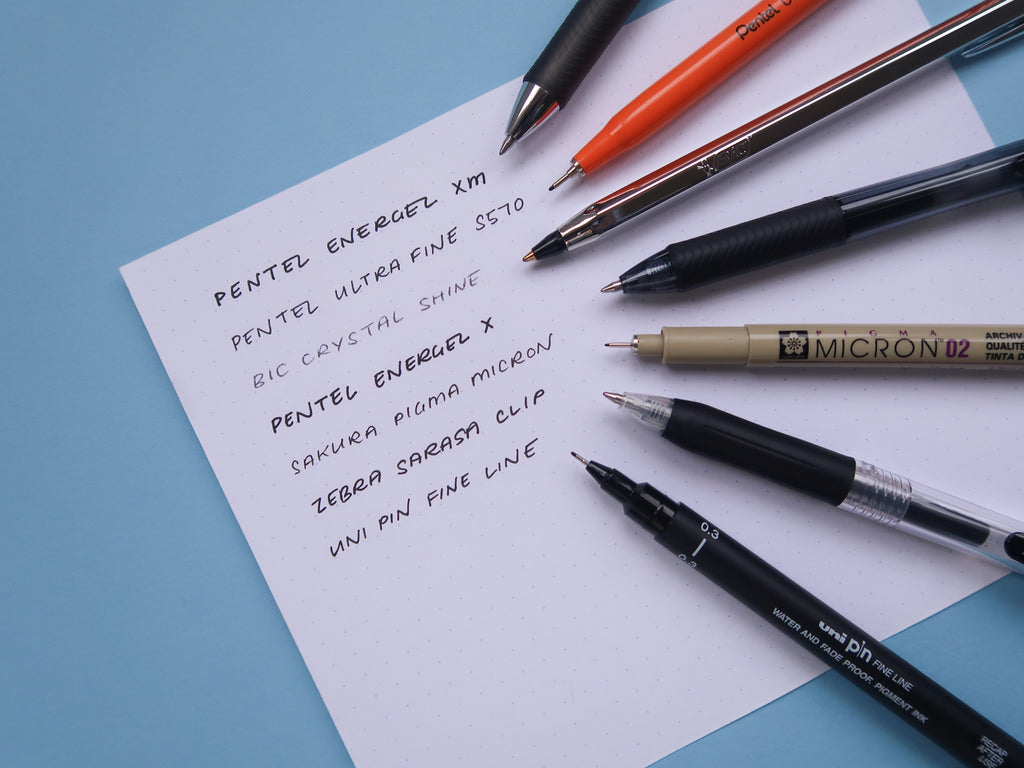 PENTEL ENERGEL Xm
PENTEL ULTRA FINE S570
BIC CRYSTAL SHINE
PENTEL ENERGEL X
SAKURA PIGMA MICRON
ZEBRA SARASA CLIP
UNI PIN FINE LINE
Pentel
PIGMA
MICRON 02
ARCHIV
QUALITE
TINTA D
0.3
0.3
uni pin FINE LINE
WATER AND FADE PROOF, PIGMENT INK
RECAP
AFTER
USE